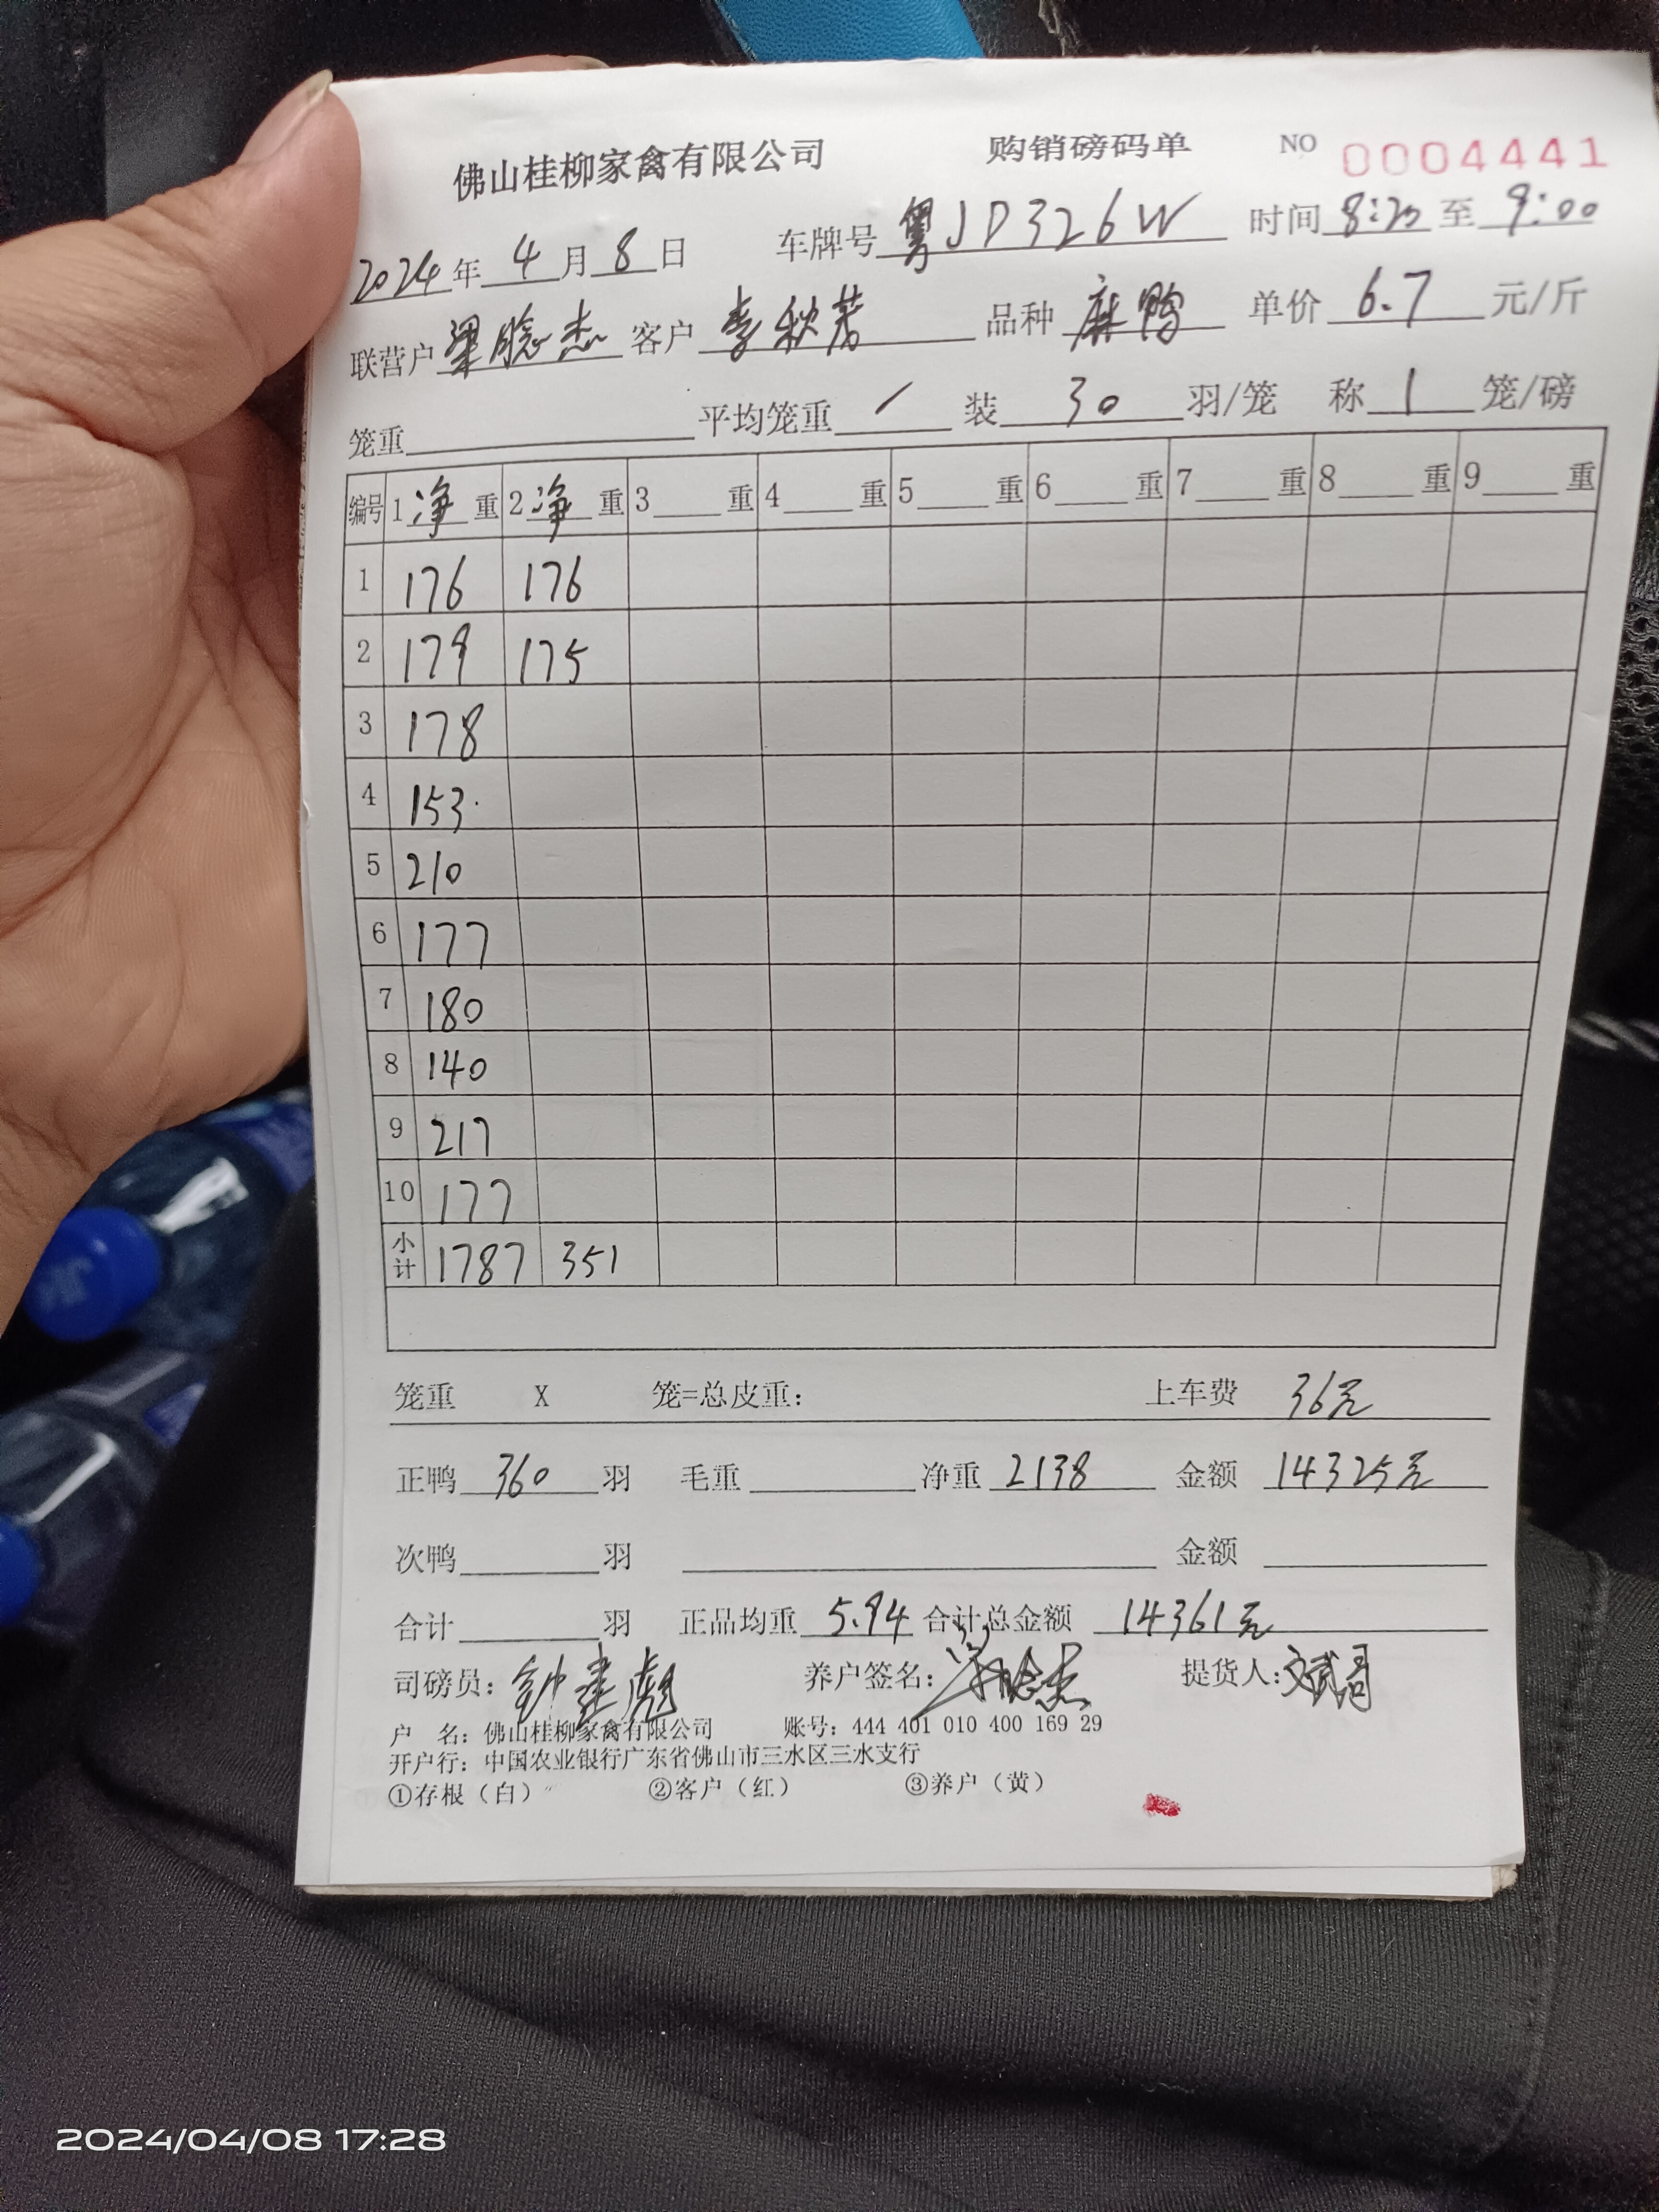 佛山桂柳家禽有限公司 购销磅码单 NO 0004441
2024年 4月 8日 车牌号 粤JD326W 时间 8:20 至 9:00
联营户 梁 杰 客户 李秋芳 品种 麻鸭 单价 6.7 元/斤
笼重 平均笼重 / 装 30 羽/笼 称 1 笼/磅
编号 1 净 重 2 净 重 3 重 4 重 5 重 6 重 7 重 8 重 9 重
1 176 176
2 179 175
3 178
4 153
5 210
6 177
7 180
8 140
9 217
10 177
小计 1787 351
笼重 X 笼=总皮重： 上车费 36元
正鸭 360 羽 毛重 净重 2138 金额 14325元
次鸭 羽 金额
合计 羽 正品均重 5.94 合计总金额 14361元
司磅员：钟建彪 养户签名： 杰 提货人：
户 名：佛山桂柳家禽有限公司 账号：444 401 010 400 169 29
开户行：中国农业银行广东省佛山市三水区三水支行
①存根（白） ②客户（红） ③养户（黄）
2024/04/08 17:28